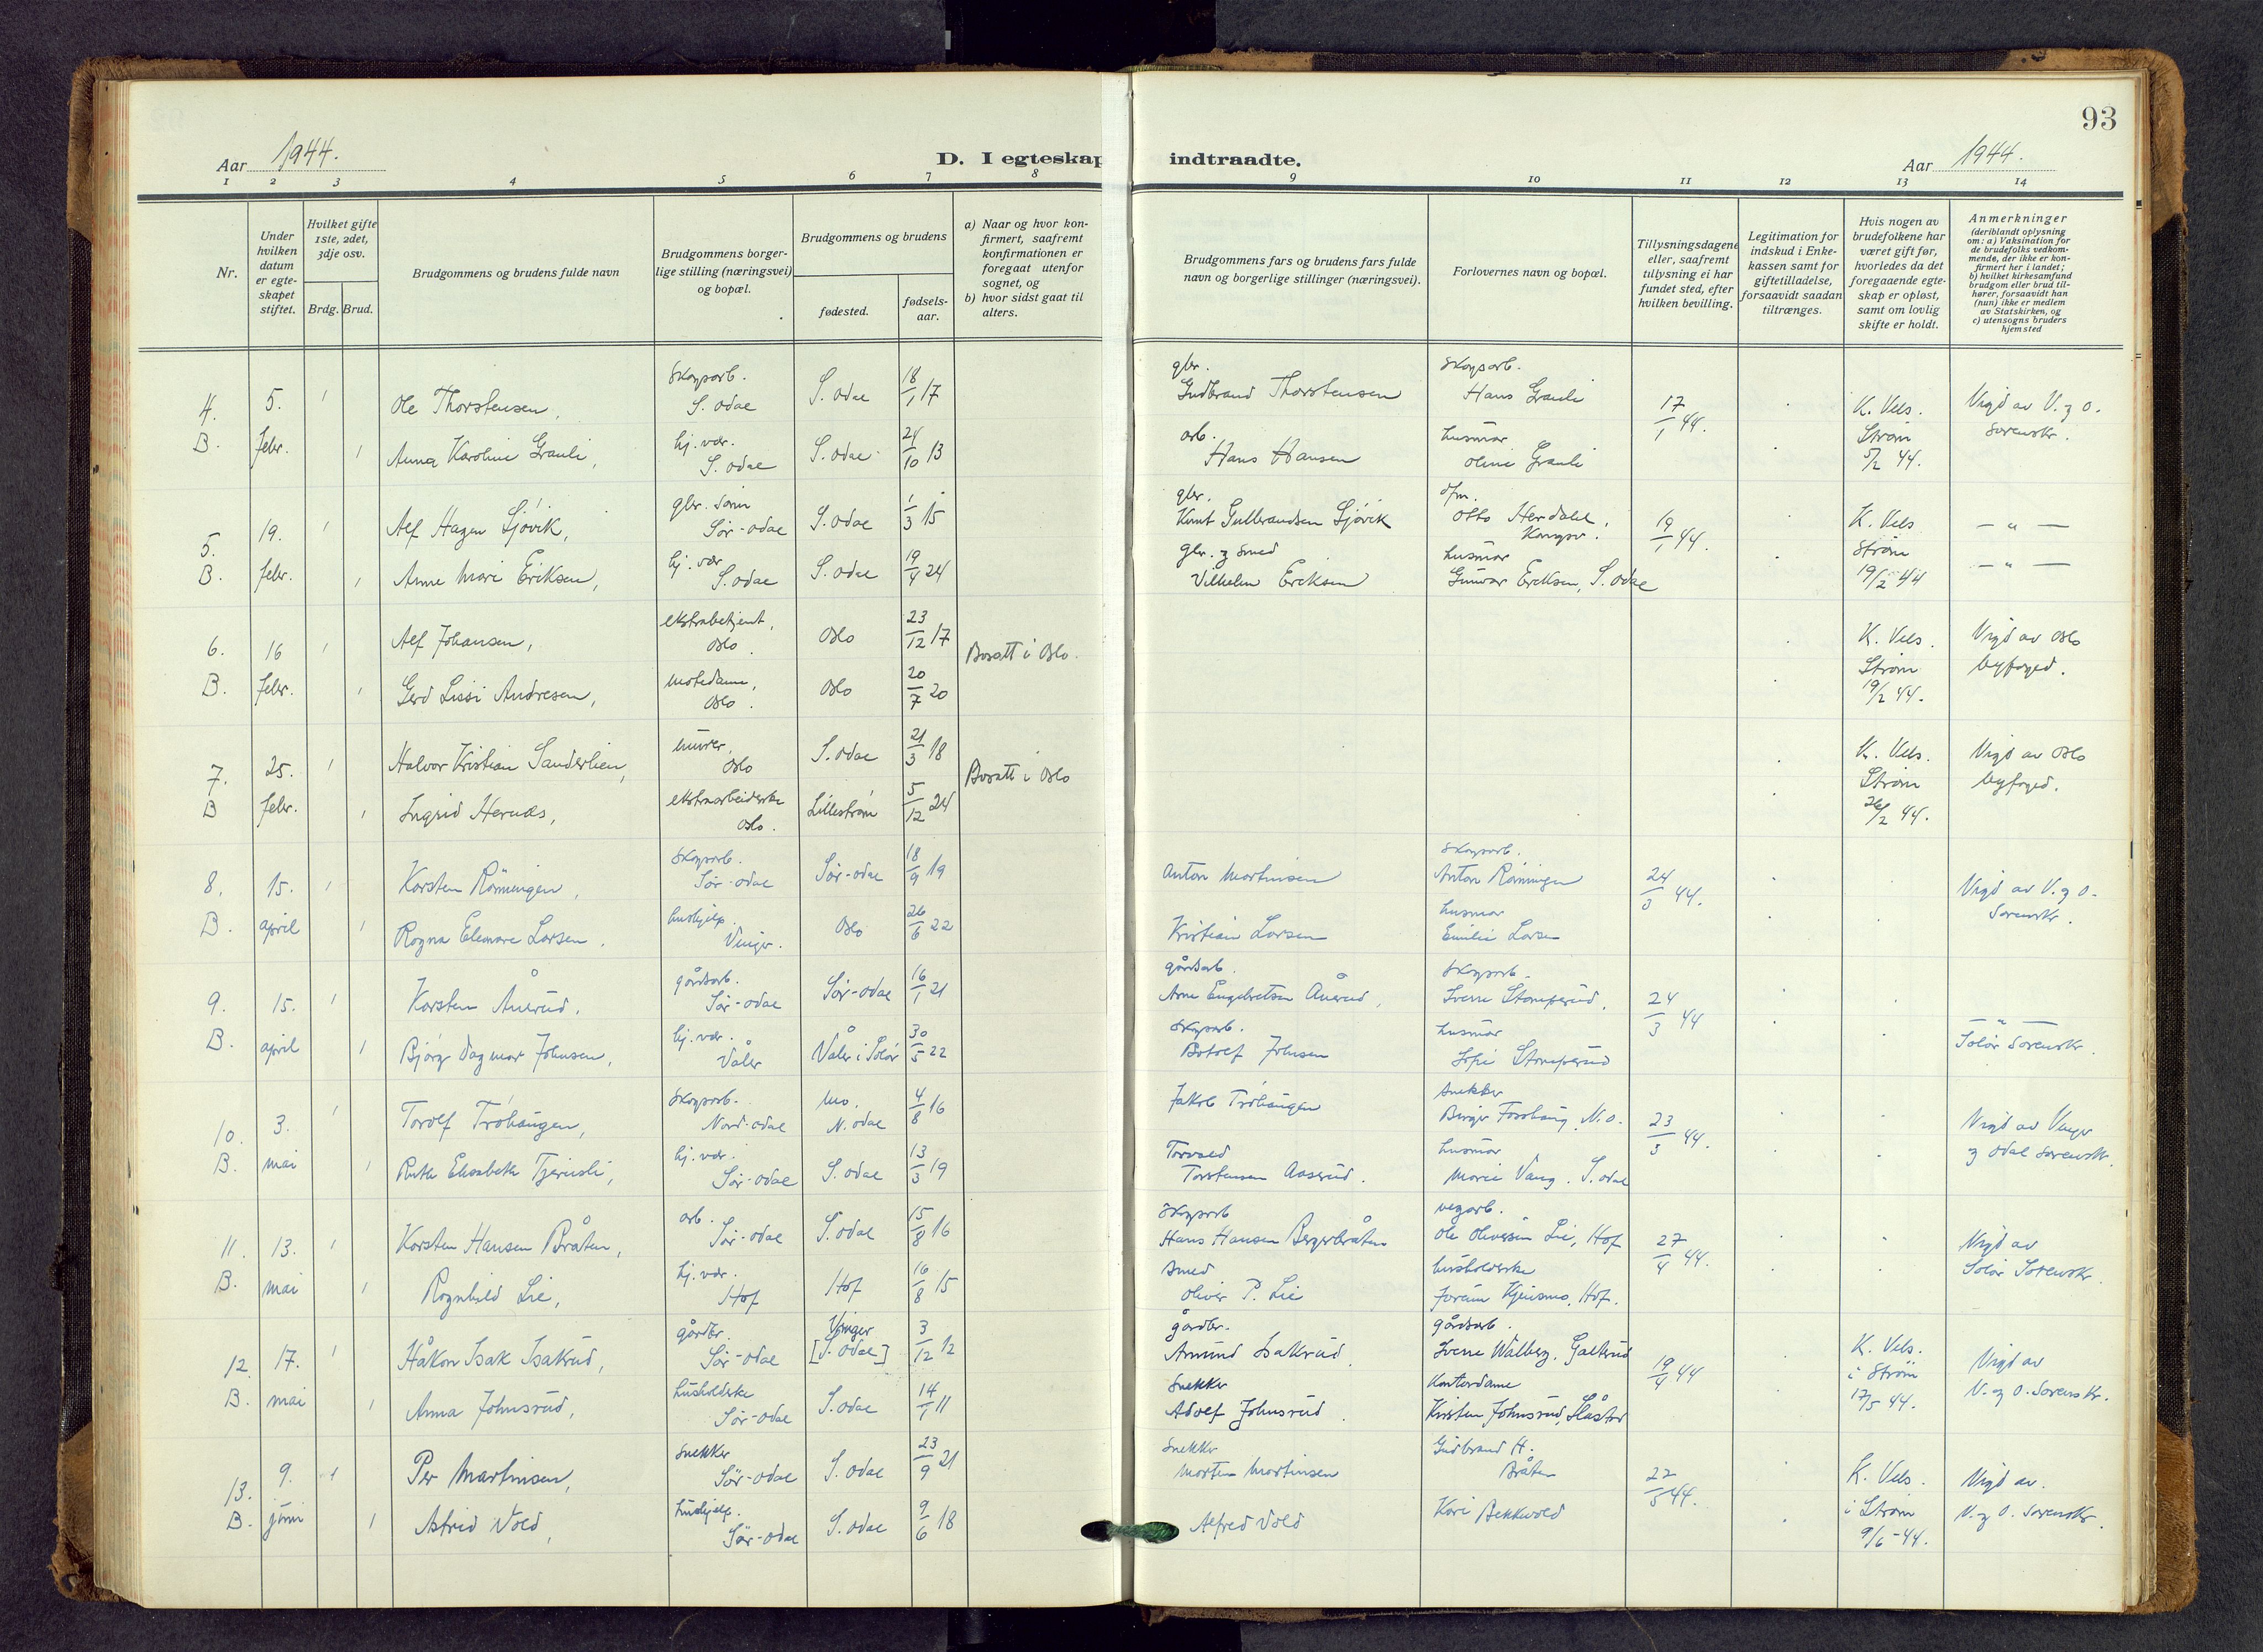 93
Aar 1944.
D. I egteskap
indtraadte.
Aar 1944.
1 2 3 4 5 6 7 8
9 10 11 12 13 14
Nr.
Under hvilken datum er egteskapet stiftet.
Hvilket gifte 1ste, 2det, 3dje osv.
Brdg. Brud.
Brudgommens og brudens fulde navn
Brudgommens borgerlige stilling (næringsvei) og bopæl.
Brudgommens og brudens
fødested.
fødsels-aar.
a) Naar og hvor konfirmert, saafremt konfirmationen er foregaat utenfor sognet, og
b) hvor sidst gaat til alters.
Brudgommens fars og brudens fars fulde navn og borgerlige stillinger (næringsvei).
Forlovernes navn og bopæl.
Tillysningsdagene eller, saafremt tillysning ei har fundet sted, efter hvilken bevilling.
Legitimation for indskud i Enkekassen samt for giftetilladelse, forsaavidt saadan tiltrænges.
Hvis nogen av brudefolkene har været gift før, hvorledes da det foregaaende egteskap er opløst, samt om lovlig skifte er holdt.
Anmerkninger
(deriblandt oplysning om: a) Vaksination for de brudefolks vedkommende, der ikke er konfirmert her i landet;
b) hvilket kirkesamfund brudgom eller brud tilhører, forsaavidt han (hun) ikke er medlem av Statskirken, og
c) utensogns bruders hjemsted
4. 5. 1 Ole Thorstensen, Skogsarb. S. Odal S. Odal 18/1 17 gbr. Gudbrand Thorstensen Skogsarb. Hans Grauli 17/1 44. K. Vels. Vigd av V. g O.
B. febr. 1 Anna Karoline Grauli, hj. vær. S. Odal S. Odal 24/10 13 arb. Hans Hansen husmor Oline Grauli Strøm 5/2 44. Sorenskr.
5. 19. 1 Alf Hagen Sjövik, gbr. sønn Sør-Odal S. Odal 1/3 15 gbr. Knut Gulbrandsen Sjövik Otto Herdahl, Kongsv. 19/1 44. K. Vels — " —
B. febr. 1 Anne Mari Eriksen, hj. vær S. Odal S. Odal 19/4 24 gbr. g smed Vilhelm Eriksen husmor Gunvor Eriksen, S. Odal Strøm 19/2 44 — " —
6. 16 1 Alf Johansen, ekstrabetjent, Oslo. Oslo 23/12 17 Bosatt i Oslo. K. Vels. Vigd av Oslo
B. febr. 1 Gerd Lissi Andresen, motedame, Oslo. Oslo 20/7 20 Strøm 19/2 44. byfoged.
7. 25. 1 Halvor Kristian Sanderlien, murer, Oslo S. Odal 21/3 18 Bosatt i Oslo K. Vels. Vigd av Oslo
B febr. 1 Ingrid Hernæs, ekstraarbeiderske Oslo. Lillestrøm 5/12 24 Strøm 26/2 44. byfoged.
8. 15. 1 Korsten Rönningen, Skogsarb. Sør-Odal Sør-Odal 18/9 19 Anton Martinsen Skogsarb. Anton Rönningen 24/3 44. Vigd av V. g O.
B. april 1 Ragna Elenore Larsen. hushjelp. Vinger. Oslo 26/6 22 Kristian Larsen husmor Emilie Larsen Sorenskr.
9. 15. 1 Korsten Åserud. gårdsarb. Sør-Odal Sør-Odal 16/1 21 gårdsarb. Arne Engebretsen Åserud, Skogsarb. Sverre Stomperud. 24/3 44 — " —
B. april 1 Bjørg Dagmar Johnsen, hj. vær. Våler Våler i Solør 30/5 22 Skogsarb. Botolf Johnsen husmor Sofie Stomperud Solør Sorenskr.
10. 3. 1 Torolf Tröhaugen, Skogsarb. Nord-Odal Mo. N. Odal 4/8 16 Jakob Tröhaugen snekker Birger Fosshaug, N.O. 23/3 44. Vigd av Vinger
B. mai 1 Ruth Elisabeth Tjernsli, hj. vær. Sør-Odal S. Odal 13/3 19 Torvald Torstensen Aaserud. husmor Marie Vang. S. Odal g Odal Sorenskr.
11. 13. 1 Korsten Hansen Bråten, arb. Sør-Odal S. Odal 15/8 16 Skogsarb Hans Hansen Bergerbråten vegarb. Ole Oliversen Lie, Hof 27/4 44. Vigd av
B. mai 1 Ragnhild Lie, hj. vær. Hof Hof 16/8 15 smed Oliver P. Lie husholderske Jorunn Kjensmo, Hof. Solør Sorenskr.
12. 17. 1 Håkon Isak Isakrud, gårdbr. Sør-Odal Vinger [S. Odal] 3/12 12 gårdbr. Amund Isakrud. gårdsarb. Sverre Walberg, Galterud 19/4 44 K. Vels. Vigd av
B. mai 1 Anna Johnsrud, husholderske Sør-Odal S. Odal 14/1 11 Snekker Adolf Johnsrud. Kontordame Kirsten Johnsrud, Slåstad i Strøm 17/5 44. V. g O. Sorenskr.
13. 9. 1 Per Martinsen, Snekker Sør-Odal S. Odal 23/9 21 Snekker Morten Martinsen Gudbrand H. Bråten 22/5 44. K. Vels. Vigd av.
B. juni 1 Astrid Vold, hushjelp. Sør-Odal S. Odal 9/6 18 Alfred Vold Kari Bekkevold i Strøm 9/6-44. V. g O. Sorenskr.